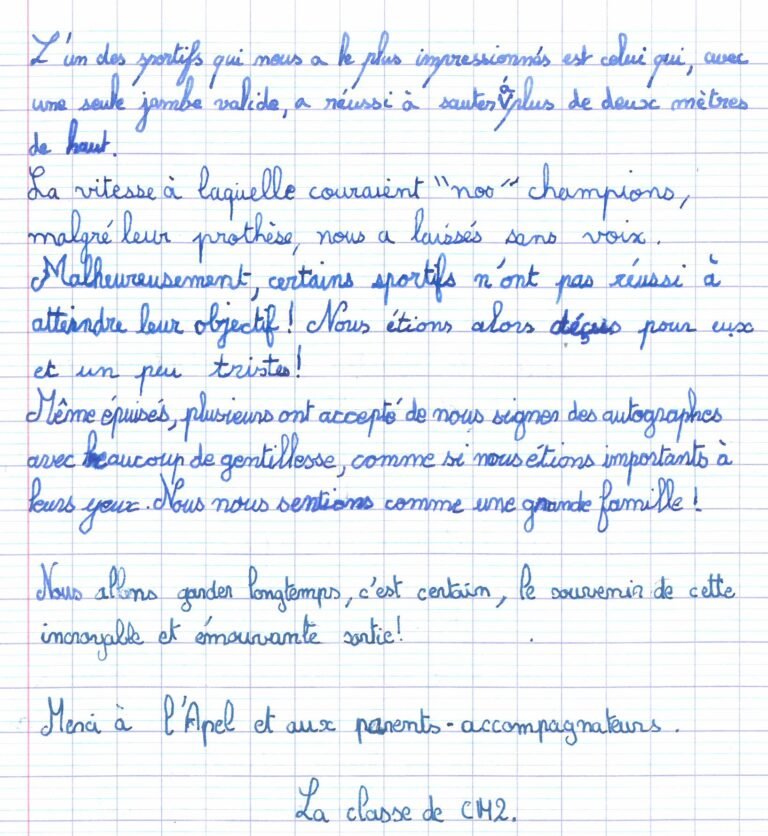 L'un des sportifs qui nous a le plus impressionnés est celui qui, avec
une seule jambe valide, a réussi à sauter à plus de deux mètres
de haut.
La vitesse à laquelle couraient "nos" champions,
malgré leur prothèse, nous a laissés sans voix.
Malheureusement, certains sportifs n'ont pas réussi à
atteindre leur objectif ! Nous étions alors déçus pour eux
et un peu tristes !
Même épuisés, plusieurs ont accepté de nous signer des autographes
avec beaucoup de gentillesse, comme si nous étions importants à
leurs yeux. Nous nous sentions comme une grande famille !
Nous allons garder longtemps, c'est certain, le souvenir de cette
incroyable et émouvante sortie !
Merci à l'Apel et aux parents-accompagnateurs.
La classe de CM2.